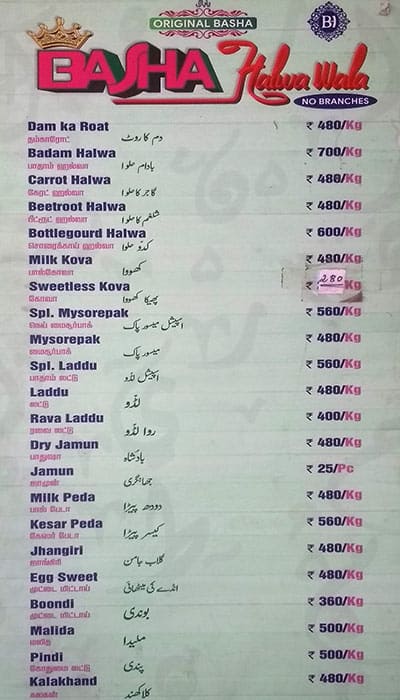 ORIGINAL BASHA
BASHA Halwa Wala
NO BRANCHES
Dam ka Roat ₹ 480/Kg
தம்காரோட் دم کا روٹ
Badam Halwa ₹ 700/Kg
பாதாம் ஹல்வா بادام حلوا
Carrot Halwa ₹ 480/Kg
கேரட் ஹல்வா گاجر کا حلوا
Beetroot Halwa ₹ 480/Kg
பீட்ரூட் ஹல்வா شلغم کا حلوا
Bottlegourd Halwa ₹ 600/Kg
சொரைக்காய் ஹல்வா کدّو حلوا
Milk Kova ₹ 480/Kg
பால்கோவா کھووا
Sweetless Kova ₹ 280 Kg
கோவா پھیکا کھووا
Spl. Mysorepak ₹ 560/Kg
நெய் மைசூர்பாக் اسپیشل میسور پاک
Mysorepak ₹ 480/Kg
மைசூர்பாக் میسور پاک
Spl. Laddu ₹ 560/Kg
பாதாம் லட்டு اسپیشل لڈو
Laddu ₹ 480/Kg
லட்டு لڈو
Rava Laddu ₹ 400/Kg
ரவை லட்டு روا لڈو
Dry Jamun ₹ 480/Kg
பாதுஷா بادشاہ
Jamun ₹ 25/Pc
ஜாமுன் جھانگری
Milk Peda ₹ 480/Kg
பால் பேடா دودھ پیڑا
Kesar Peda ₹ 560/Kg
கேஸர் பேடா کیسر پیڑا
Jhangiri ₹ 480/Kg
ஜாங்கிரி گلاب جامن
Egg Sweet ₹ 480/Kg
முட்டை மிட்டாய் انڈے کی میٹھائی
Boondi ₹ 360/Kg
முட்டை மிட்டாய் بوندی
Malida ₹ 500/Kg
மலிதா ملیدا
Pindi ₹ 500/Kg
கோதுமை லட்டு پنڈی
Kalakhand ₹ 480/Kg
کلاکھنڈ